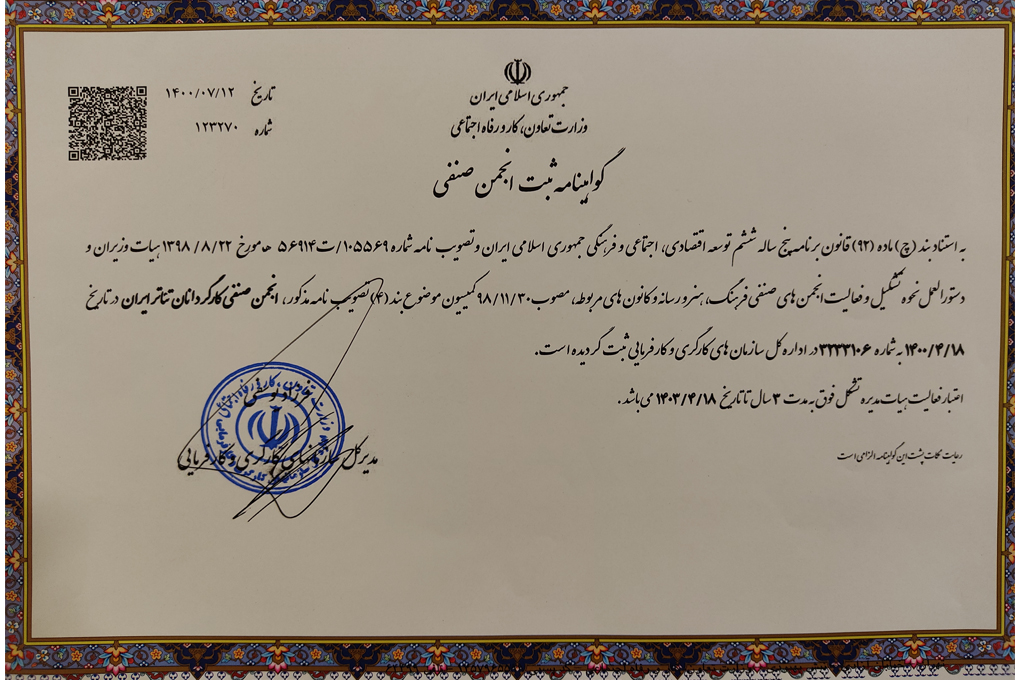 جمهوری اسلامی ایران
وزارت تعاون، کار و رفاه اجتماعی
تاریخ ۱۴۰۰/۰۷/۱۲
شماره ۱۲۳۲۷۰
گواهینامه ثبت انجمن صنفی
به استناد بند (چ) ماده (۹۲) قانون برنامه پنج ساله ششم توسعه اقتصادی، اجتماعی و فرهنگی جمهوری اسلامی ایران و تصویب نامه شماره ۱۰۵۵۶۹/ت۵۶۹۱۴ ه‍ مورخ ۱۳۹۸/۸/۲۲ هیات وزیران و
دستورالعمل نحوه تشکیل و فعالیت انجمن های صنفی فرهنگ، هنر و رسانه و کانون های مربوطه، مصوب ۹۸/۱۱/۳۰ کمیسیون موضوع بند (۴) تصویب نامه مذکور، انجمن صنفی کارگردانان تئاتر ایران در تاریخ
۱۴۰۰/۴/۱۸ به شماره ۳۲۳۳۱۰۶ در اداره کل سازمان های کارگری و کارفرمایی ثبت گردیده است.
اعتبار فعالیت هیات مدیره تشکل فوق به مدت ۳ سال تا تاریخ ۱۴۰۳/۴/۱۸ می باشد.
رعایت نکات پشت این گواهینامه الزامی است
مدیرکل سازمانهای کارگری و کارفرمایی
وزارت تعاون، کار و رفاه اجتماعی